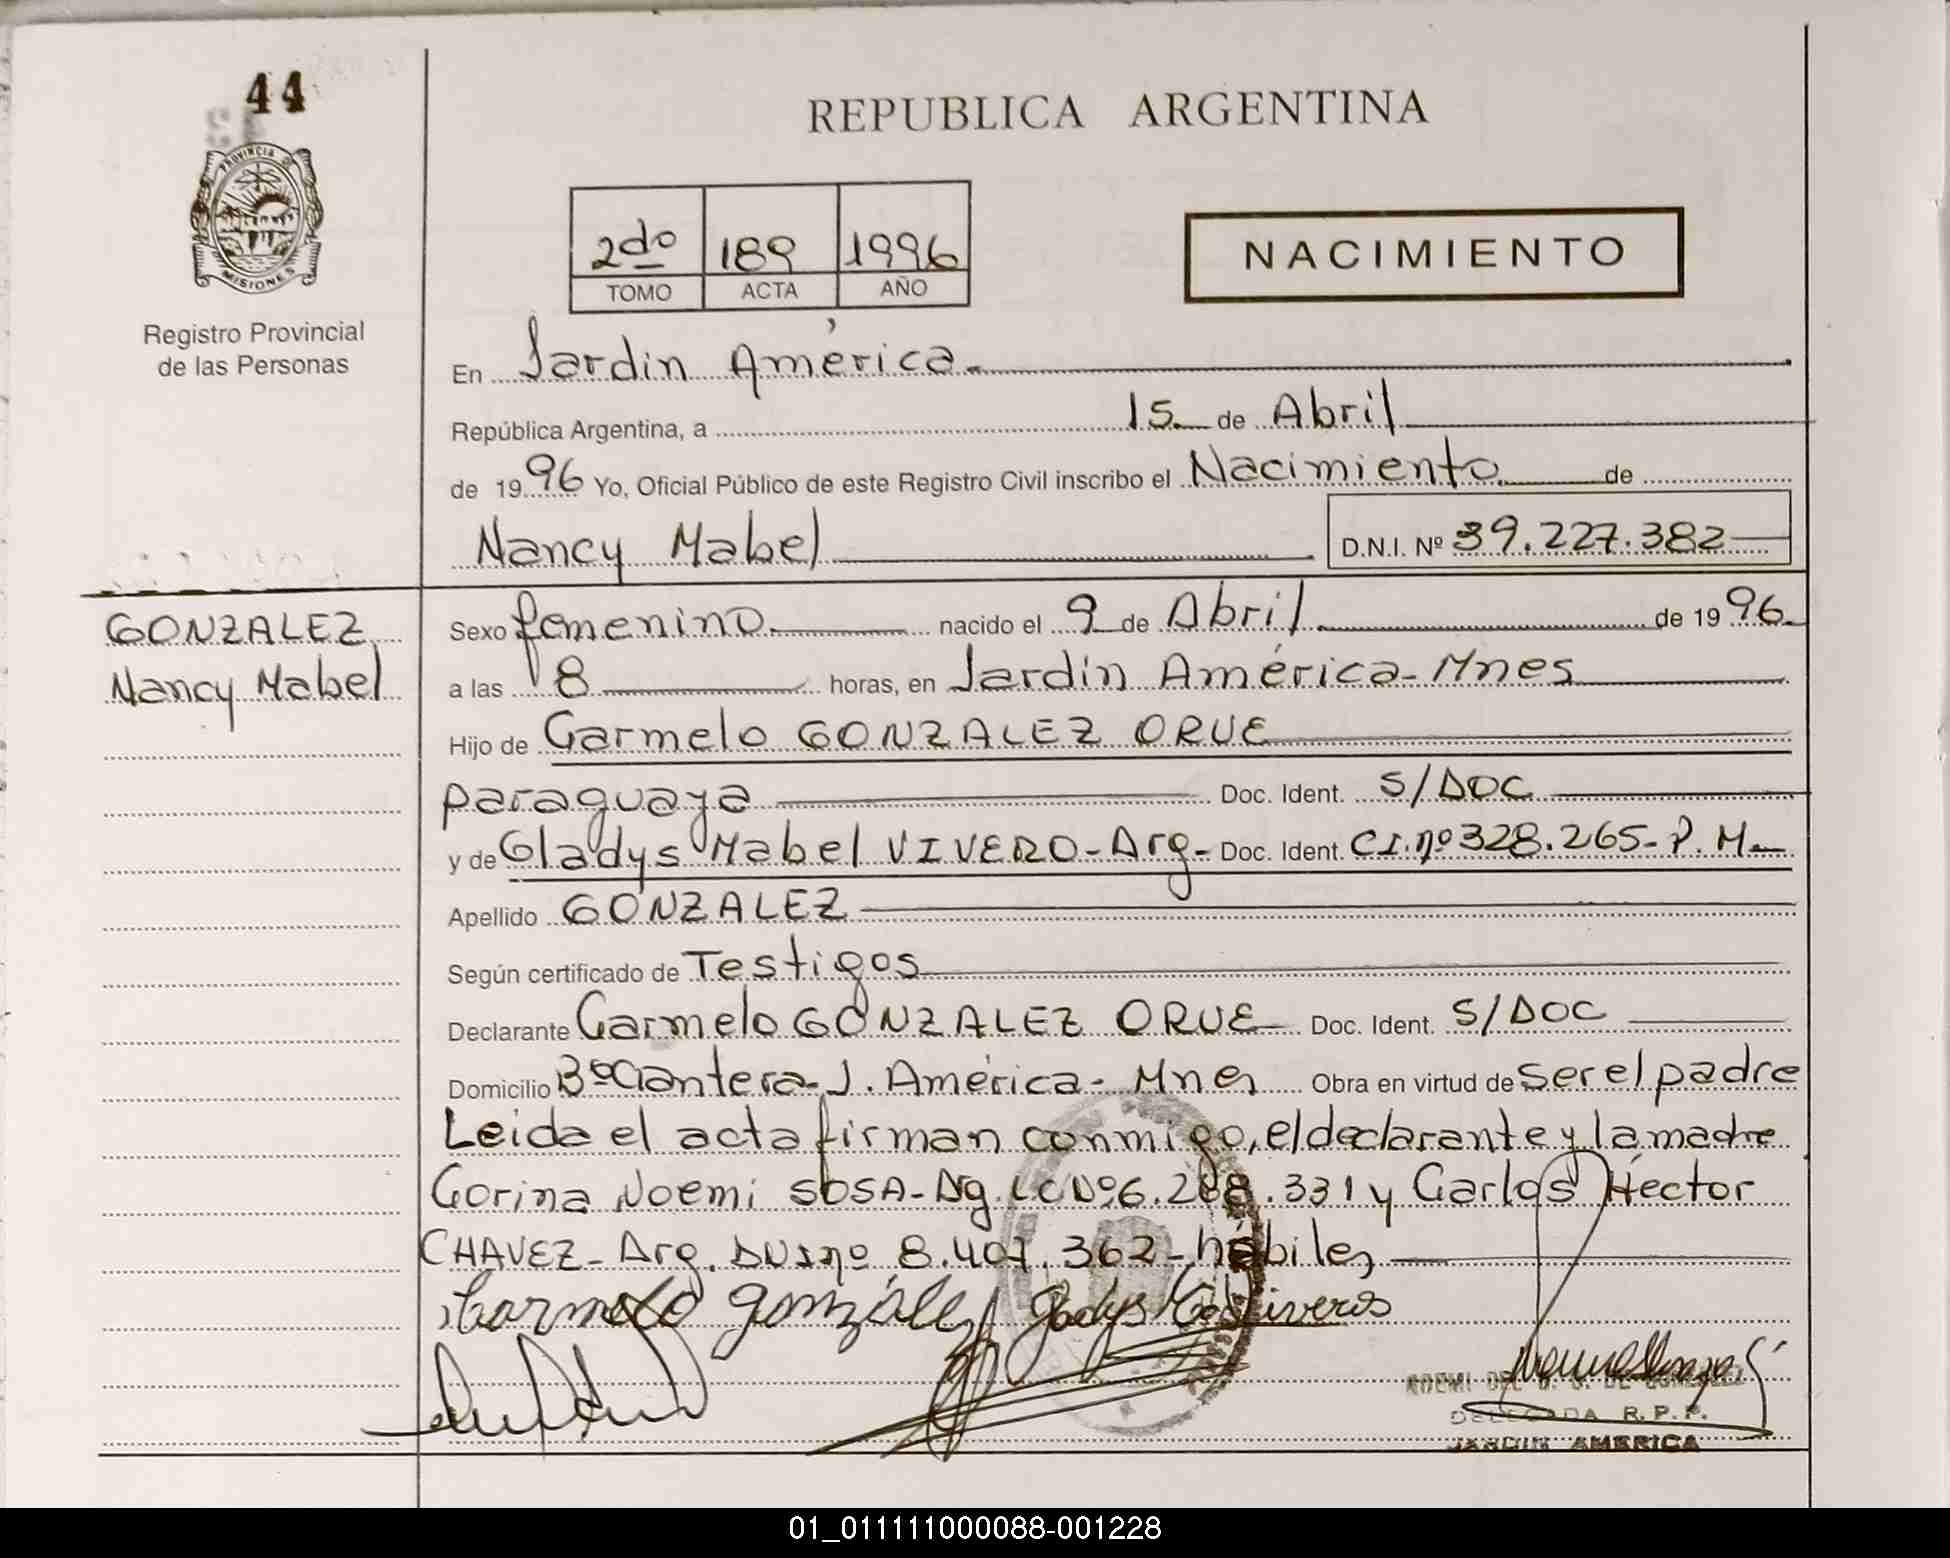 44
REPUBLICA ARGENTINA
PROVINCIA DE
MISIONES
Registro Provincial
de las Personas
2do 189 1996
TOMO ACTA AÑO
NACIMIENTO
En Jardin América.
República Argentina, a 15 de Abril
de 1996 Yo, Oficial Público de este Registro Civil inscribo el Nacimiento de
Nancy Mabel D.N.I. Nº 39.227.382
GONZALEZ
Nancy Mabel
Sexo femenino nacido el 9 de Abril de 1996
a las 8 horas, en Jardin América-Mnes
Hijo de Carmelo GONZALEZ ORUE
paraguaya Doc. Ident. S/DOC
y de Gladys Mabel VIVERO-Arg- Doc. Ident. C.I.nº328.265-P.M
Apellido GONZALEZ
Según certificado de Testigos
Declarante Carmelo GONZALEZ ORUE Doc. Ident. S/DOC
Domicilio Bº Cantera-J. América-Mnes Obra en virtud de ser el padre
Leida el acta firman conmigo, el declarante y la madre
Corina Noemi SOSA-Arg. LC Nº6.288.331 y Carlos Héctor
CHAVEZ-Arg. DNI nº 8.407.362-hábiles
Carmelo González Gladys Viveros
NOEMI DEL DE GONZALEZ
DELEGADA R.P.P.
JARDIN AMERICA
01_011111000088-001228